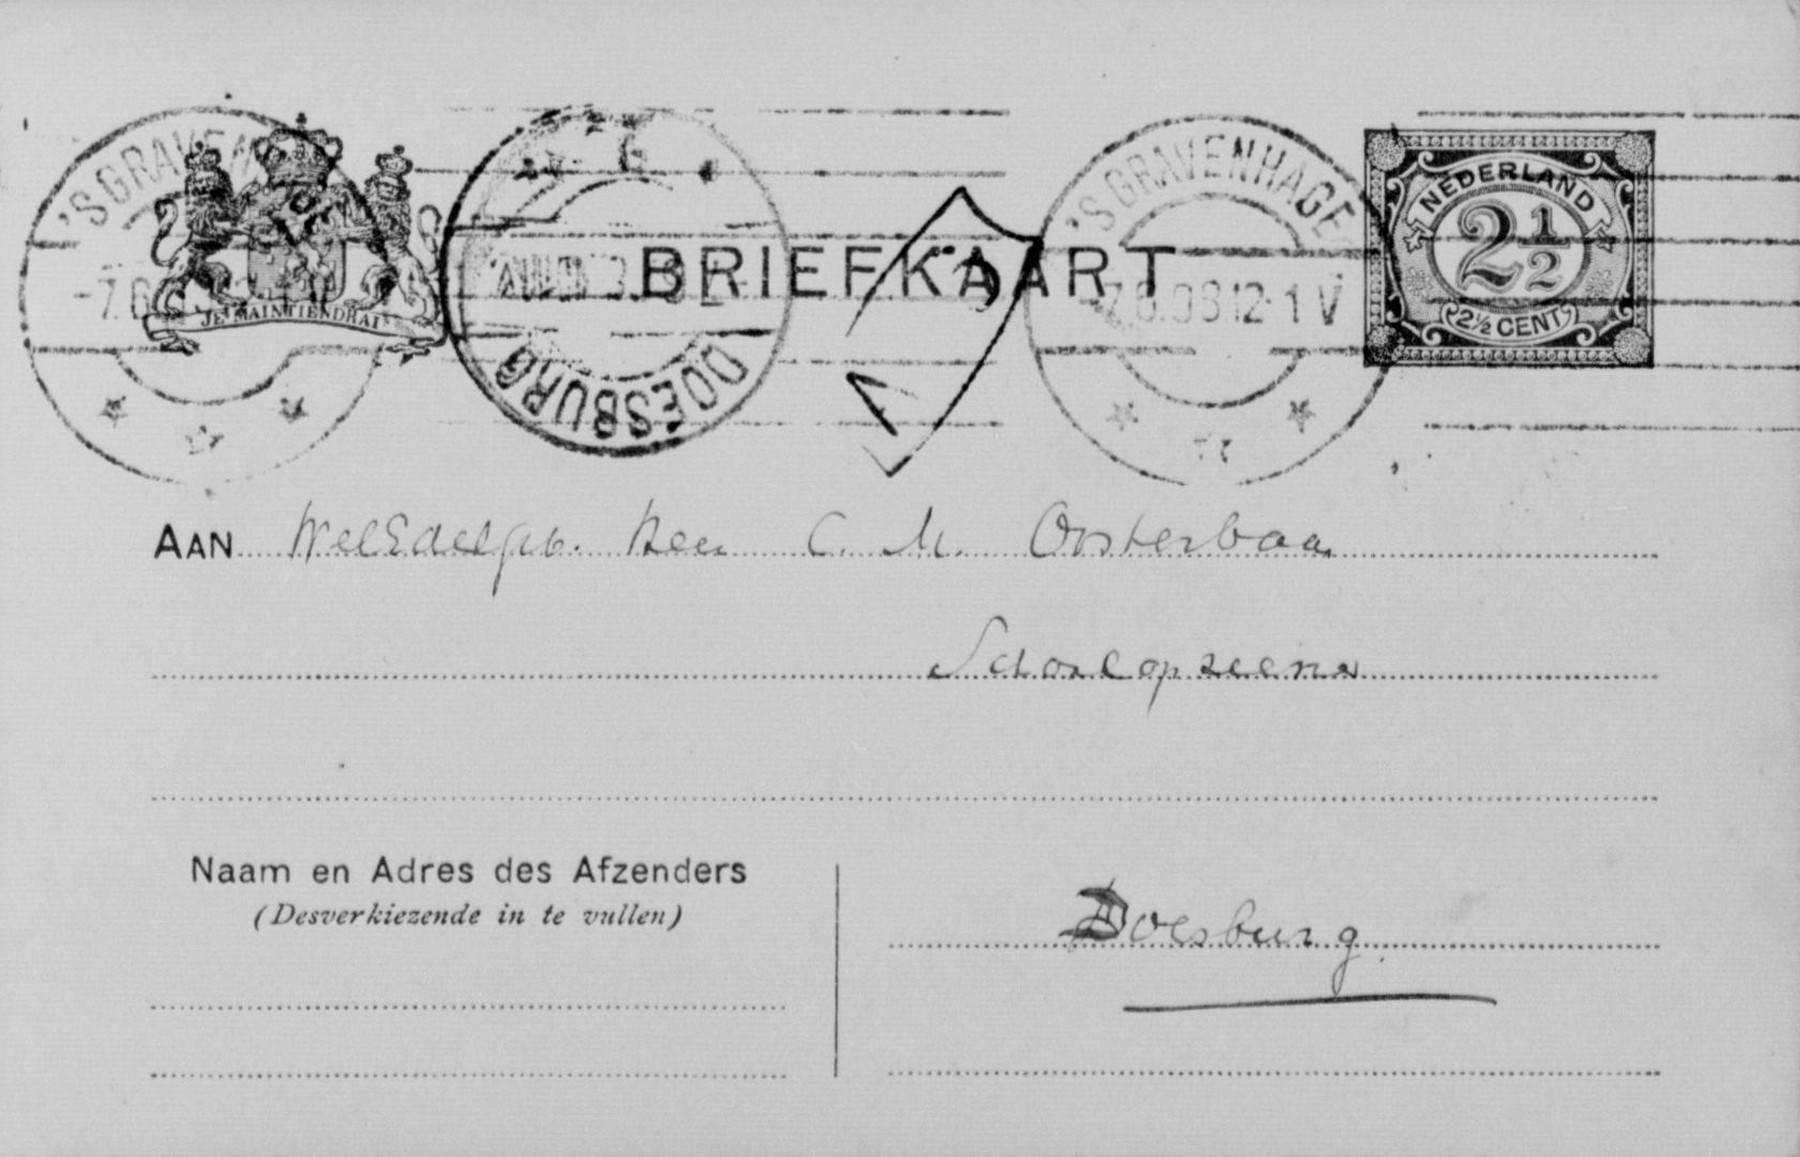 'SGRAVENHAGE
NEDERLAND
2½
2½ CENT
BRIEFKAART
JE MAINTIENDRAI
-7.6
7.6.08 12-1 V
DOESBURG
AAN WelEdelgeb. Heer C. M. Oosterbaan
Schoolopziener
Naam en Adres des Afzenders
(Desverkiezende in te vullen)
Doesburg.